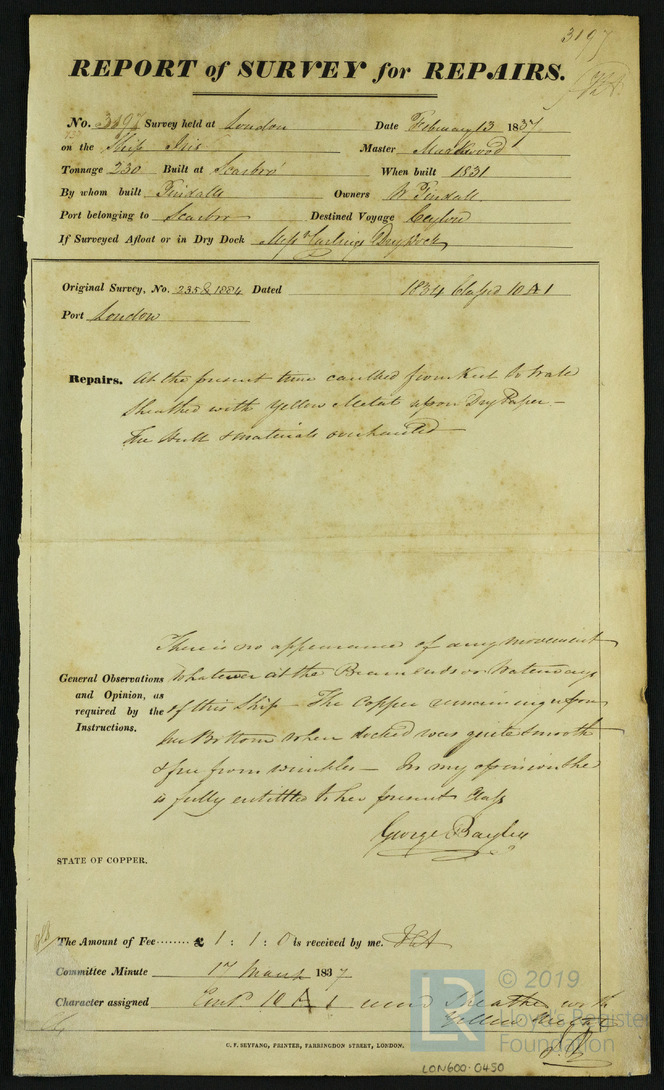 3197
REPORT of SURVEY for REPAIRS.
No. 3197 Survey held at London Date February 13 1837
on the Ship Iris Master Markwood
Tonnage 230 Built at Scarbro' When built 1831
By whom built Tindalls Owners W Tindall
Port belonging to Scarbro Destined Voyage Ceylon
If Surveyed Afloat or in Dry Dock Messrs Curlings Dry Dock
Original Survey, No. 235 & 1884 Dated 1834 Classed 10 A 1
Port London
Repairs. At the present time caulked from Keel to Wales
Sheathed with Yellow Metal upon Dry Paper –
The Hull & materials overhauled –
There is no appearance of any movement
General Observations and Opinion, as required by the Instructions.
whatever at the Beam ends or Waterways
of this Ship – The Copper remaining upon
her Bottom when docked was quite smooth
& free from wrinkles – In my opinion she
is fully entittled to her present Class
George Bayley
STATE OF COPPER.
The Amount of Fee ........ £ 1 : 1 : 0 is received by me.
Committee Minute 17 March 1837
Character assigned Cont. 10 A 1 Sheathed with
Yellow Metal
C. F. SEYFANG, PRINTER, FARRINGDON STREET, LONDON.
LR © 2019
Lloyd's Register
Foundation
LON600-0450